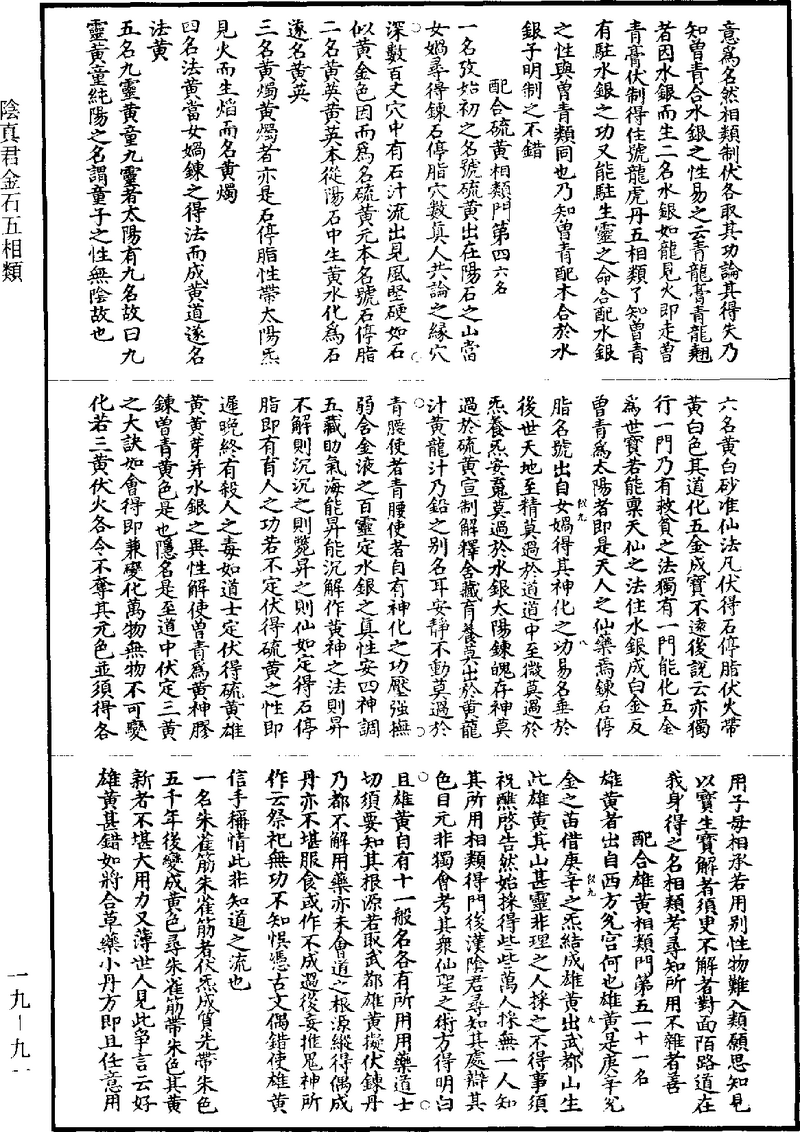 意為名然相類制伏各取其功論其得失乃
知曾青合水銀之性易之云青龍膏青龍翹
者因水銀而生二名水銀如龍見火即走曾
青膏伏制得住號龍虎丹五相類了知曾青
有駐水銀之功又能駐生靈之命合配水銀
之性與曾青類同也乃知曾青配木合於水
銀子明制之不錯
配合硫黄相類門第四六名
一名孜始初之名號硫黄出在陽石之山當
女媧尋得鍊石停脂穴數真人共論之緣穴
深數百丈穴中有石汁流出見風堅硬如石
似黄金色因而為名硫黄元本名號石停脂
二名黄英黄英本從陽石中生黄水化為石
遂名黄英
三名黄燭黄燭者亦是石停脂性帶太陽炁
見火而生焰而名黄燭
四名法黄當女媧鍊之得法而成黄道遂名
法黄
五名九靈黄童九靈者太陽有九名故曰九
靈黄童純陽之名謂童子之性無陰故也
六名黄白砂准仙法凡伏得石停脂伏火帶
黄白色其道化五金成寳不遠後說云亦獨
行一門乃有救貧之法獨有一門能化五金
為世寳若能稟天仙之法住水銀成白金反
曾青為太陽者即是天人之仙藥焉鍊石停
脂名號出自女媧得其神化之功易名垂於
後世天地至精莫過於道道中至微莫過於
炁養炁安䰟莫過於水銀太陽鍊魄存神莫
過於硫黄宣制解釋含藏育養莫出於黄龍
汁黄龍汁乃鉛之别名耳安靜不動莫過於
青腰使者青腰使者自有神化之功壓強撫
弱含金液之百靈定水銀之真性安四神調
五藏助氣海能昇能沉解作黄神之法則昇
不解則沉沉之則斃昇之則仙如定得石停
脂即有育人之功若不定伏得硫黄之性即
遲晚終有殺人之毒如道士定伏得硫黄雄
黄黄芽并水銀之異性解使曾青為黄神膠
鍊曾青黄色是也隱名是至道中伏定三黄
之大訣如會得即兼變化萬物無物不可變
化若三黄伏火各令不奪其元色並須得各
用子母相承若用别性物難入類願思知見
以寳生寳解者須臾不解者對面陌路道在
我身得之名相類考尋知所用不雜者善
配合雄黄相類門第五一十一名
雄黄者出自西方兊宫何也雄黄是庚辛兊
金之苗借庚辛之炁結成雄黄出武都山生
此雄黄其山甚靈非理之人採之不得事須
祝醮啓告然始採得些些萬人採無一人知
其所用相類得門後漢陰君尋知其處辯其
色目元非獨會考其衆仙聖之術方得明白
且雄黄自有十一般名各有所用用藥道士
切須要知其根源若取武都雄黄擬伏鍊丹
乃都不解用藥亦未會道之根源縱得偶成
丹亦不堪服食或作不成過後妄推鬼神所
作云祭祀無功不知悞憑古文偶錯使雄黄
信手稱情此非知道之流也
一名朱雀筋朱雀筋者伏炁成質先帶朱色
五千年後變成黄色尋朱雀筋帶朱色其黄
新者不堪大用力又薄世人見此爭言云好
雄黄甚錯如將合草藥小丹方即且任意用
陰真君金石五相類
一九－九一